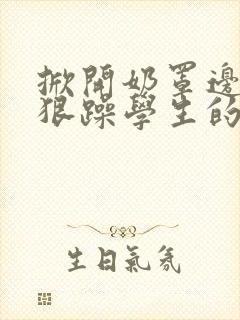 掀開奶罩邊
狠躁學生的
生日氣氛